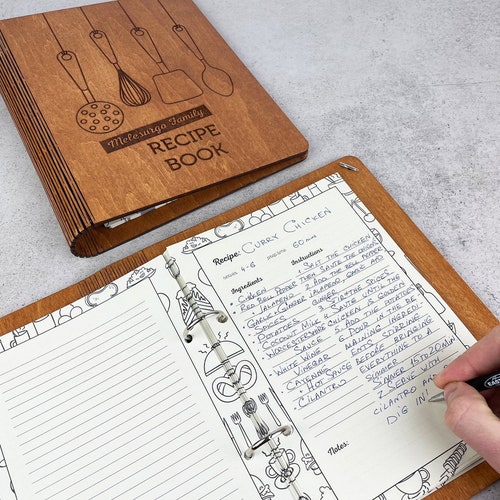 Melesurgo Family
RECIPE
BOOK
Recipe: CURRY CHICKEN
SERVES: 4-6 PREP TIME: 60 min
Ingredients
• CHICKEN
• RED BELL PEPPER
• JALAPENO
• GARLIC & GINGER
• SPICES
• POTATOES
• COCONUT MILK
• WORCESTERSHIRE
SAUCE
• WHITE WINE
VINEGAR
• CAYENNE
• HOT SAUCE
• CILANTRO
Instructions
1. SALT THE CHICKEN
THEN SAUTE THE ONIONS
2. ADD THE BELL PEPPER
JALAPENO, GARLIC AND
GINGER
3. STIR THE SPICES
4. SAUTE UNTIL THE
CHICKEN IS GOLDEN
5. ADD THE POTATOES
6. POUR IN THE RE-
MAINING INGREDI-
ENTS STIRRING
BEFORE BRINGING
EVERYTHING TO A
SIMMER
SIMMER 15 TO 20 MIN
7. SERVE WITH
CILANTRO AND
DIG IN!
Notes: